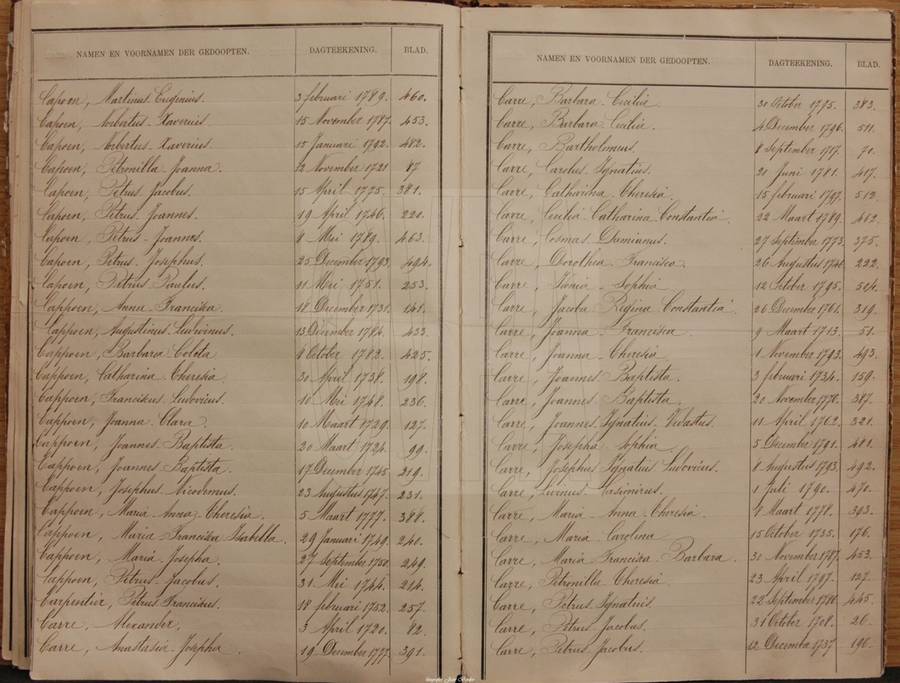 NAMEN EN VOORNAMEN DER GEDOOPTEN. DAGTEEKENING. BLAD.
Capoen, Martinus Eugenius. 3 februari 1789. 460.
Capoen, Norbertus Xaverius. 15 November 1787. 453.
Capoen, Norbertus Xaverius. 15 Januari 1792. 482.
Capoen, Petronilla Joanna. 12 November 1721 87
Capoen, Petrus Jacobus. 15 April 1775. 381.
Capoen, Petrus Joannes. 19 April 1746. 220.
Capoen, Petrus Joannes. 9 Mei 1789. 463.
Capoen, Petrus Josephus. 25 December 1793. 494.
Capoen, Petrus Paulus. 11 Mei 1751. 253.
Cappoen, Anna Francisca. 18 December 1731. 141.
Cappoen, Augustinus Ludovicus. 13 December 1784. 433.
Cappoen, Barbara Coleta 9 October 1782. 425.
Cappoen, Catharina Theresia. 30 April 1738. 198.
Cappoen, Franciscus Ludovicus. 10 Mei 1748. 236.
Cappoen, Joanna Clara. 10 Maart 1729. 127.
Cappoen, Joannes Baptista. 20 Maart 1724. 99.
Cappoen, Joannes Baptista. 17 December 1745 219.
Cappoen, Josephus Nicodemus. 23 Augustus 1747. 231.
Cappoen, Maria Anna Theresia. 5 Maart 1777. 388.
Cappoen, Maria Francisca Isabella. 29 Januari 1749. 240.
Cappoen, Maria Josepha. 27 September 1750. 249.
Cappoen, Petrus Jacobus. 31 Mei 1744. 214.
Carpentier, Petrus Franciscus. 18 februari 1752. 257.
Carre, Alexander. 3 April 1720. 82.
Carre, Anastasia Josepha. 19 December 1777. 391.
NAMEN EN VOORNAMEN DER GEDOOPTEN. DAGTEEKENING. BLAD.
Carre, Barbara Cecilia 30 October 1775. 383.
Carre, Barbara Cecilia. 4 December 1796. 511.
Carre, Bartholomeus. 8 September 1717. 70.
Carre, Carolus Ignatius. 20 Juni 1781. 417.
Carre, Catharina Theresia. 15 februari 1797. 512.
Carre, Cecilia Catharina Constantia 22 Maart 1789. 462.
Carre, Cosmas Damianus. 27 September 1773. 375.
Carre, Dorothea Francisca. 26 Augustus 1746. 222.
Carre, Sophia 12 October 1795. 504.
Carre, Jacoba Regina Constantia 26 December 1761. 319.
Carre, Joanna Francisca. 9 Maart 1713. 51.
Carre, Joanna Theresia 1 November 1793. 493.
Carre, Joannes Baptista. 3 februari 1734. 159.
Carre, Joannes Baptista. 20 November 1776. 387.
Carre, Joannes Ignatius Vedastus. 11 April 1762. 321.
Carre, Josepha Sophia. 5 December 1791. 481.
Carre, Josephus Ignatius Ludovicus. 8 Augustus 1793. 492.
Carre, Livinus Casimirus. 1 Juli 1790. 470.
Carre, Maria Anna Theresia. 7 Maart 1778. 393.
Carre, Maria Carolina 15 October 1735. 176.
Carre, Maria Francisca Barbara. 30 November 1787. 453.
Carre, Petronilla Theresia 23 April 1797. 127.
Carre, Petrus Ignatius. 22 September 1786. 445.
Carre, Petrus Jacobus. 31 October 1708. 26.
Carre, Petrus Jacobus. 12 December 1737 196.